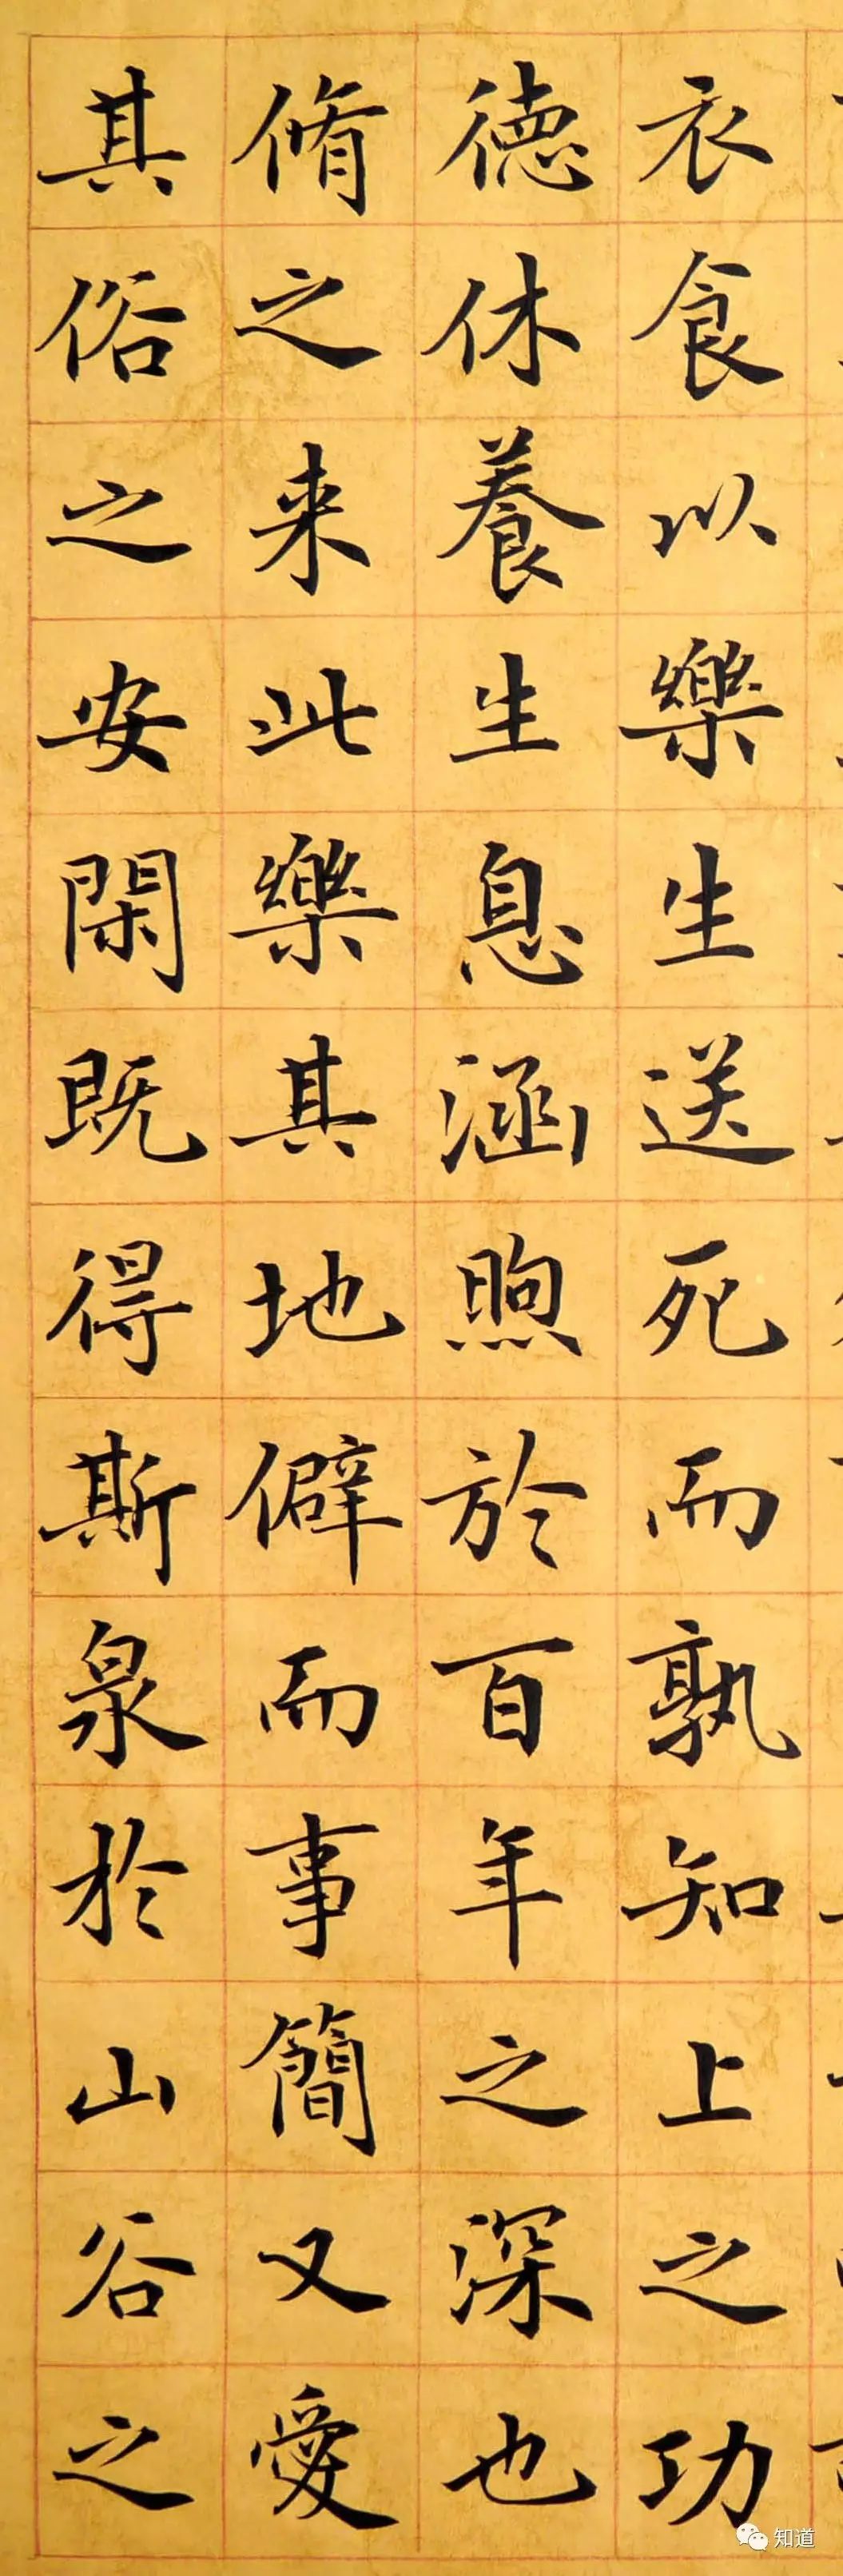 衣食以樂生送死而孰知上之功
德休養生息涵煦於百年之深也
脩之来此樂其地僻而事簡又愛
其俗之安閑既得斯泉於山谷之
知道